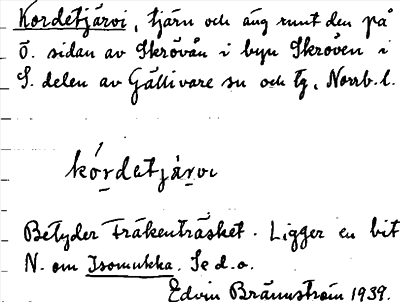 Kordetjärvi, tjärn och äng runt den på
ö. sidan av Skrövån i byn Skröven i
S. delen av Gällivare sn och tg, Norrb. l.
kórdetjárvι
Betyder Fräkenträsket. Ligger en bit
N. om Isomukka. Se d.o.
Edvin Brännström 1939.